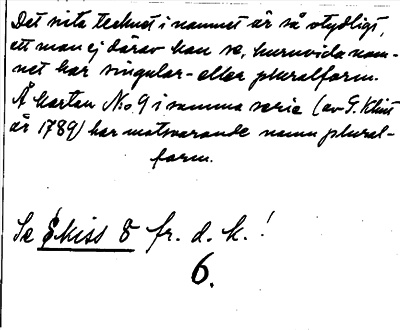 Det sista tecknet i namnet är så otydligt,
att man ej därav kan se, huruvida nam-
net har singular- eller pluralform.
Å kartan No 9 i samma serie (av G. Klint
år 1789) har motsvarande namn plural-
form.
Se Skiss 8 fr. d. k.!
6.